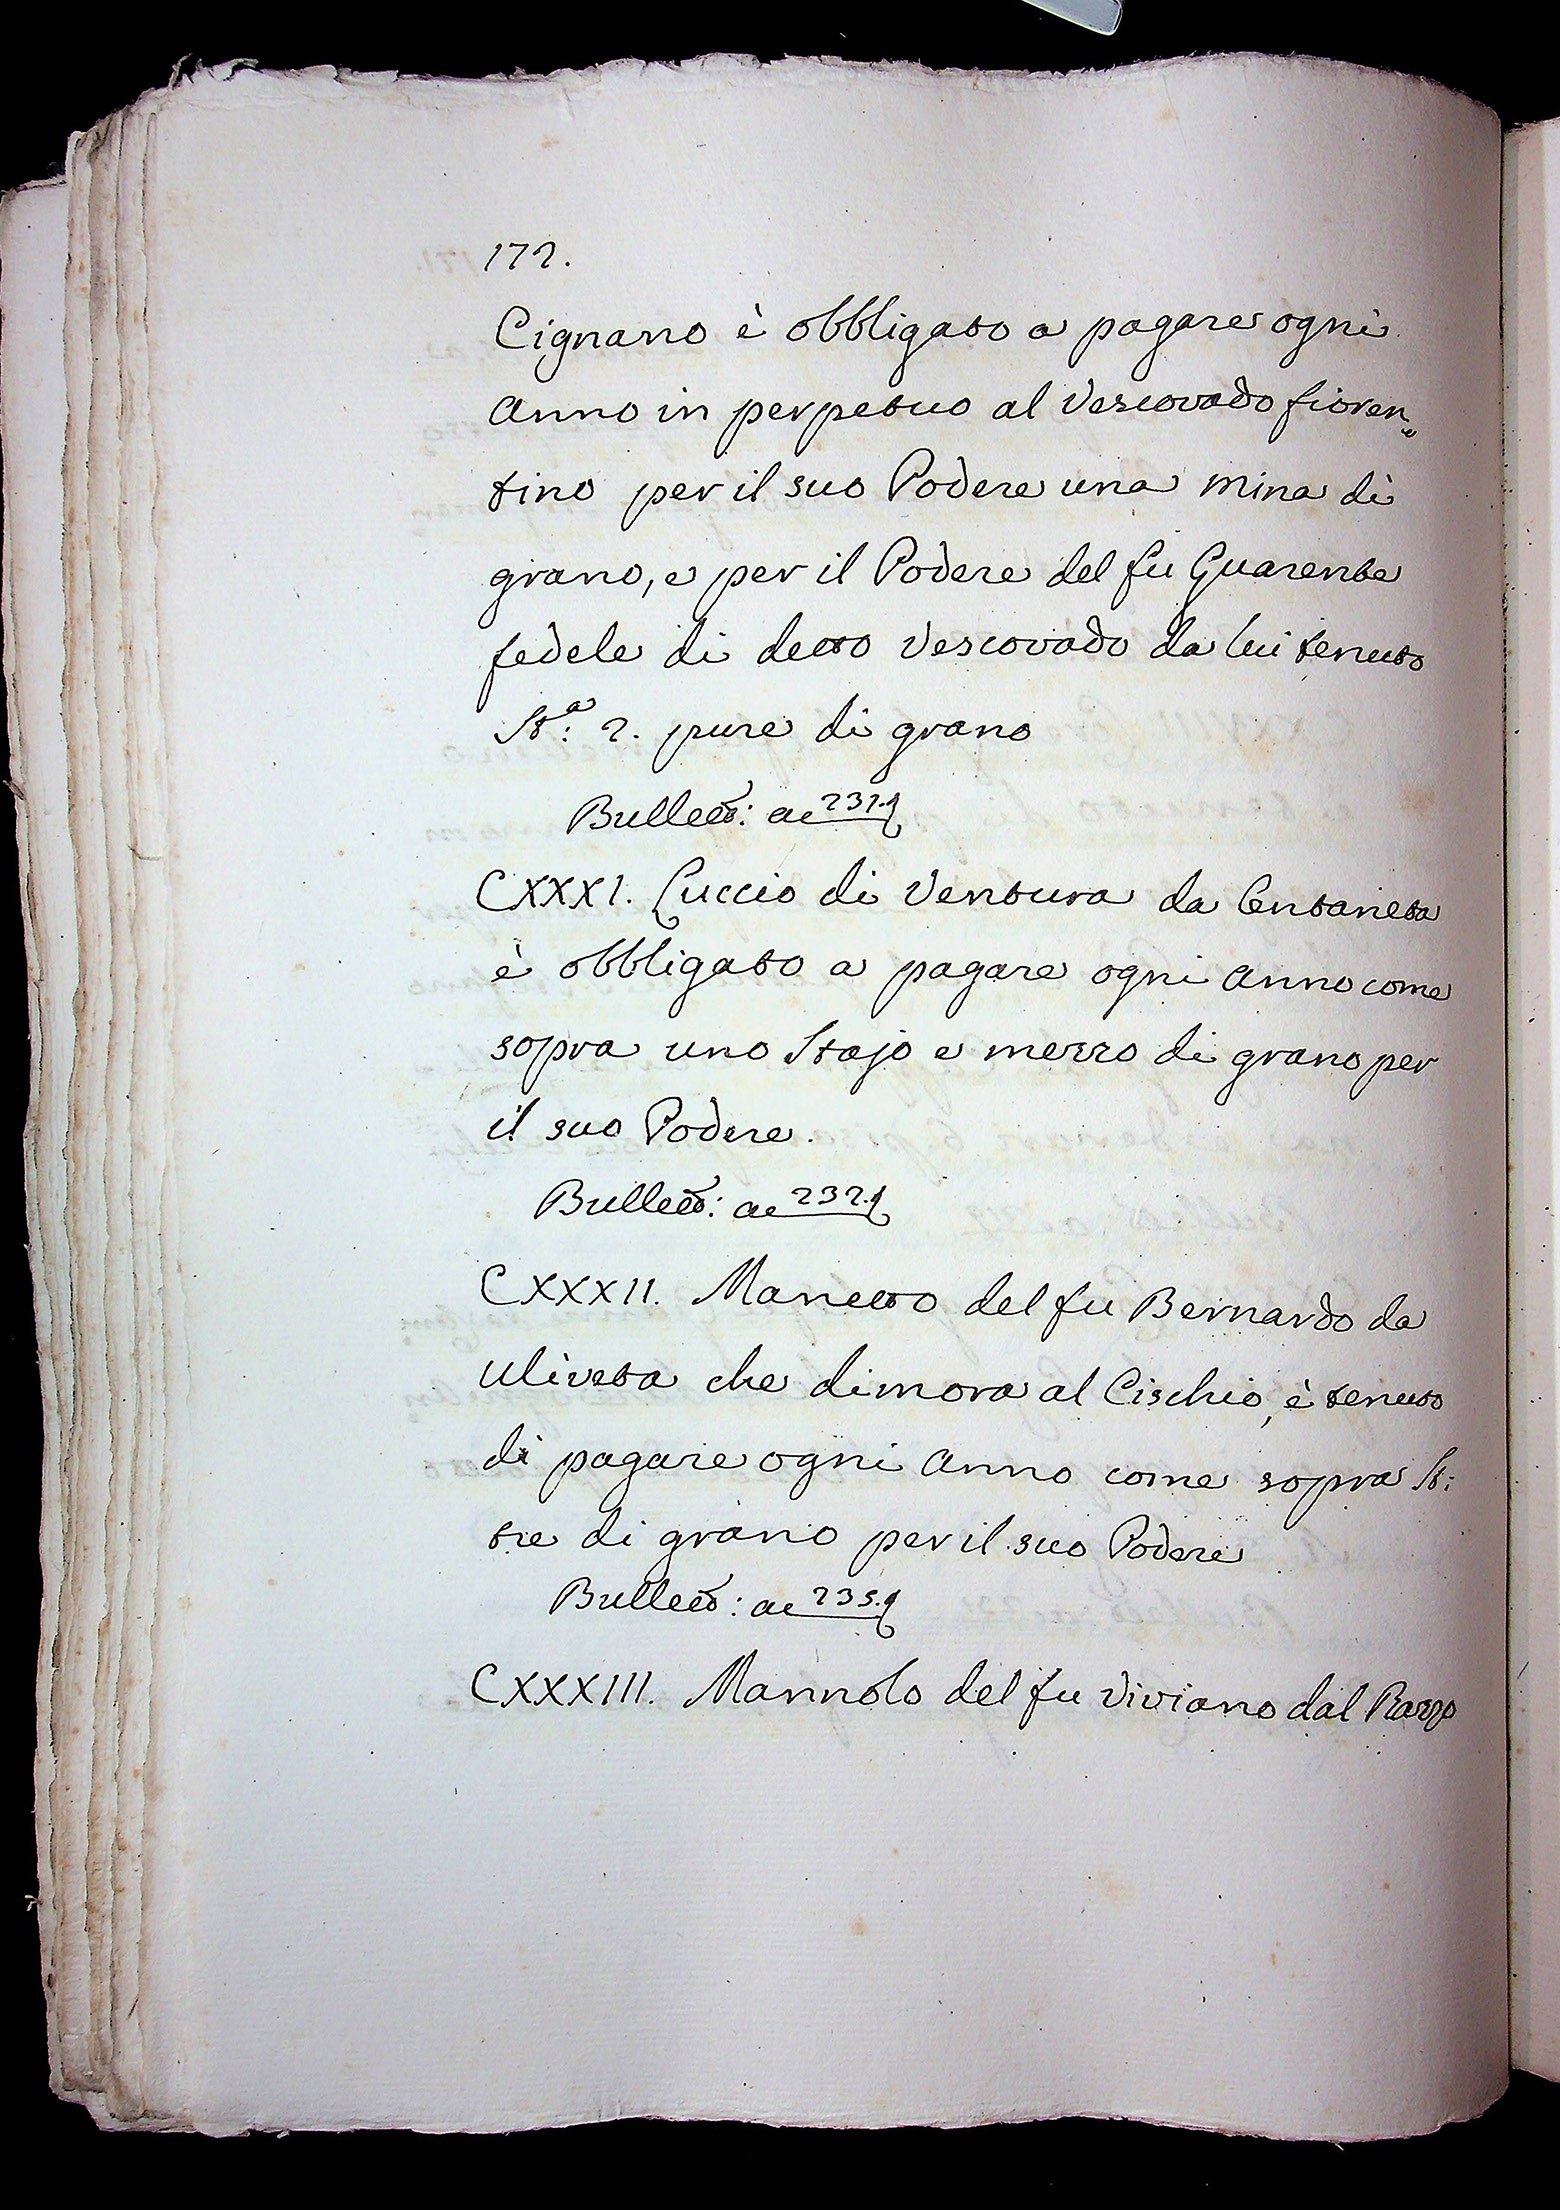 172.
Cignano è obbligato a pagare ogni
Anno in perpetuo al Vescovado fioren=
tino per il suo Podere una mina di
grano, e per il Podere del fu Guarente
fedele di detto Vescovado da lui tenuto
Sta: 2. pure di grano
Bullett: ac 232.
CXXXI. Cuccio di Ventura da Centaneta
è obbligato a pagare ogni Anno come
sopra uno Stajo e mezzo di grano per
il suo Podere.
Bullett: ac 232.
CXXXII. Manetto del fu Bernardo da
Uliveta che dimora al Cischio, è tenuto
di pagare ogni Anno come sopra St:
tre di grano per il suo Podere
Bullett: ac 235.
CXXXIII. Mannolo del fu Viviano dal Razzo